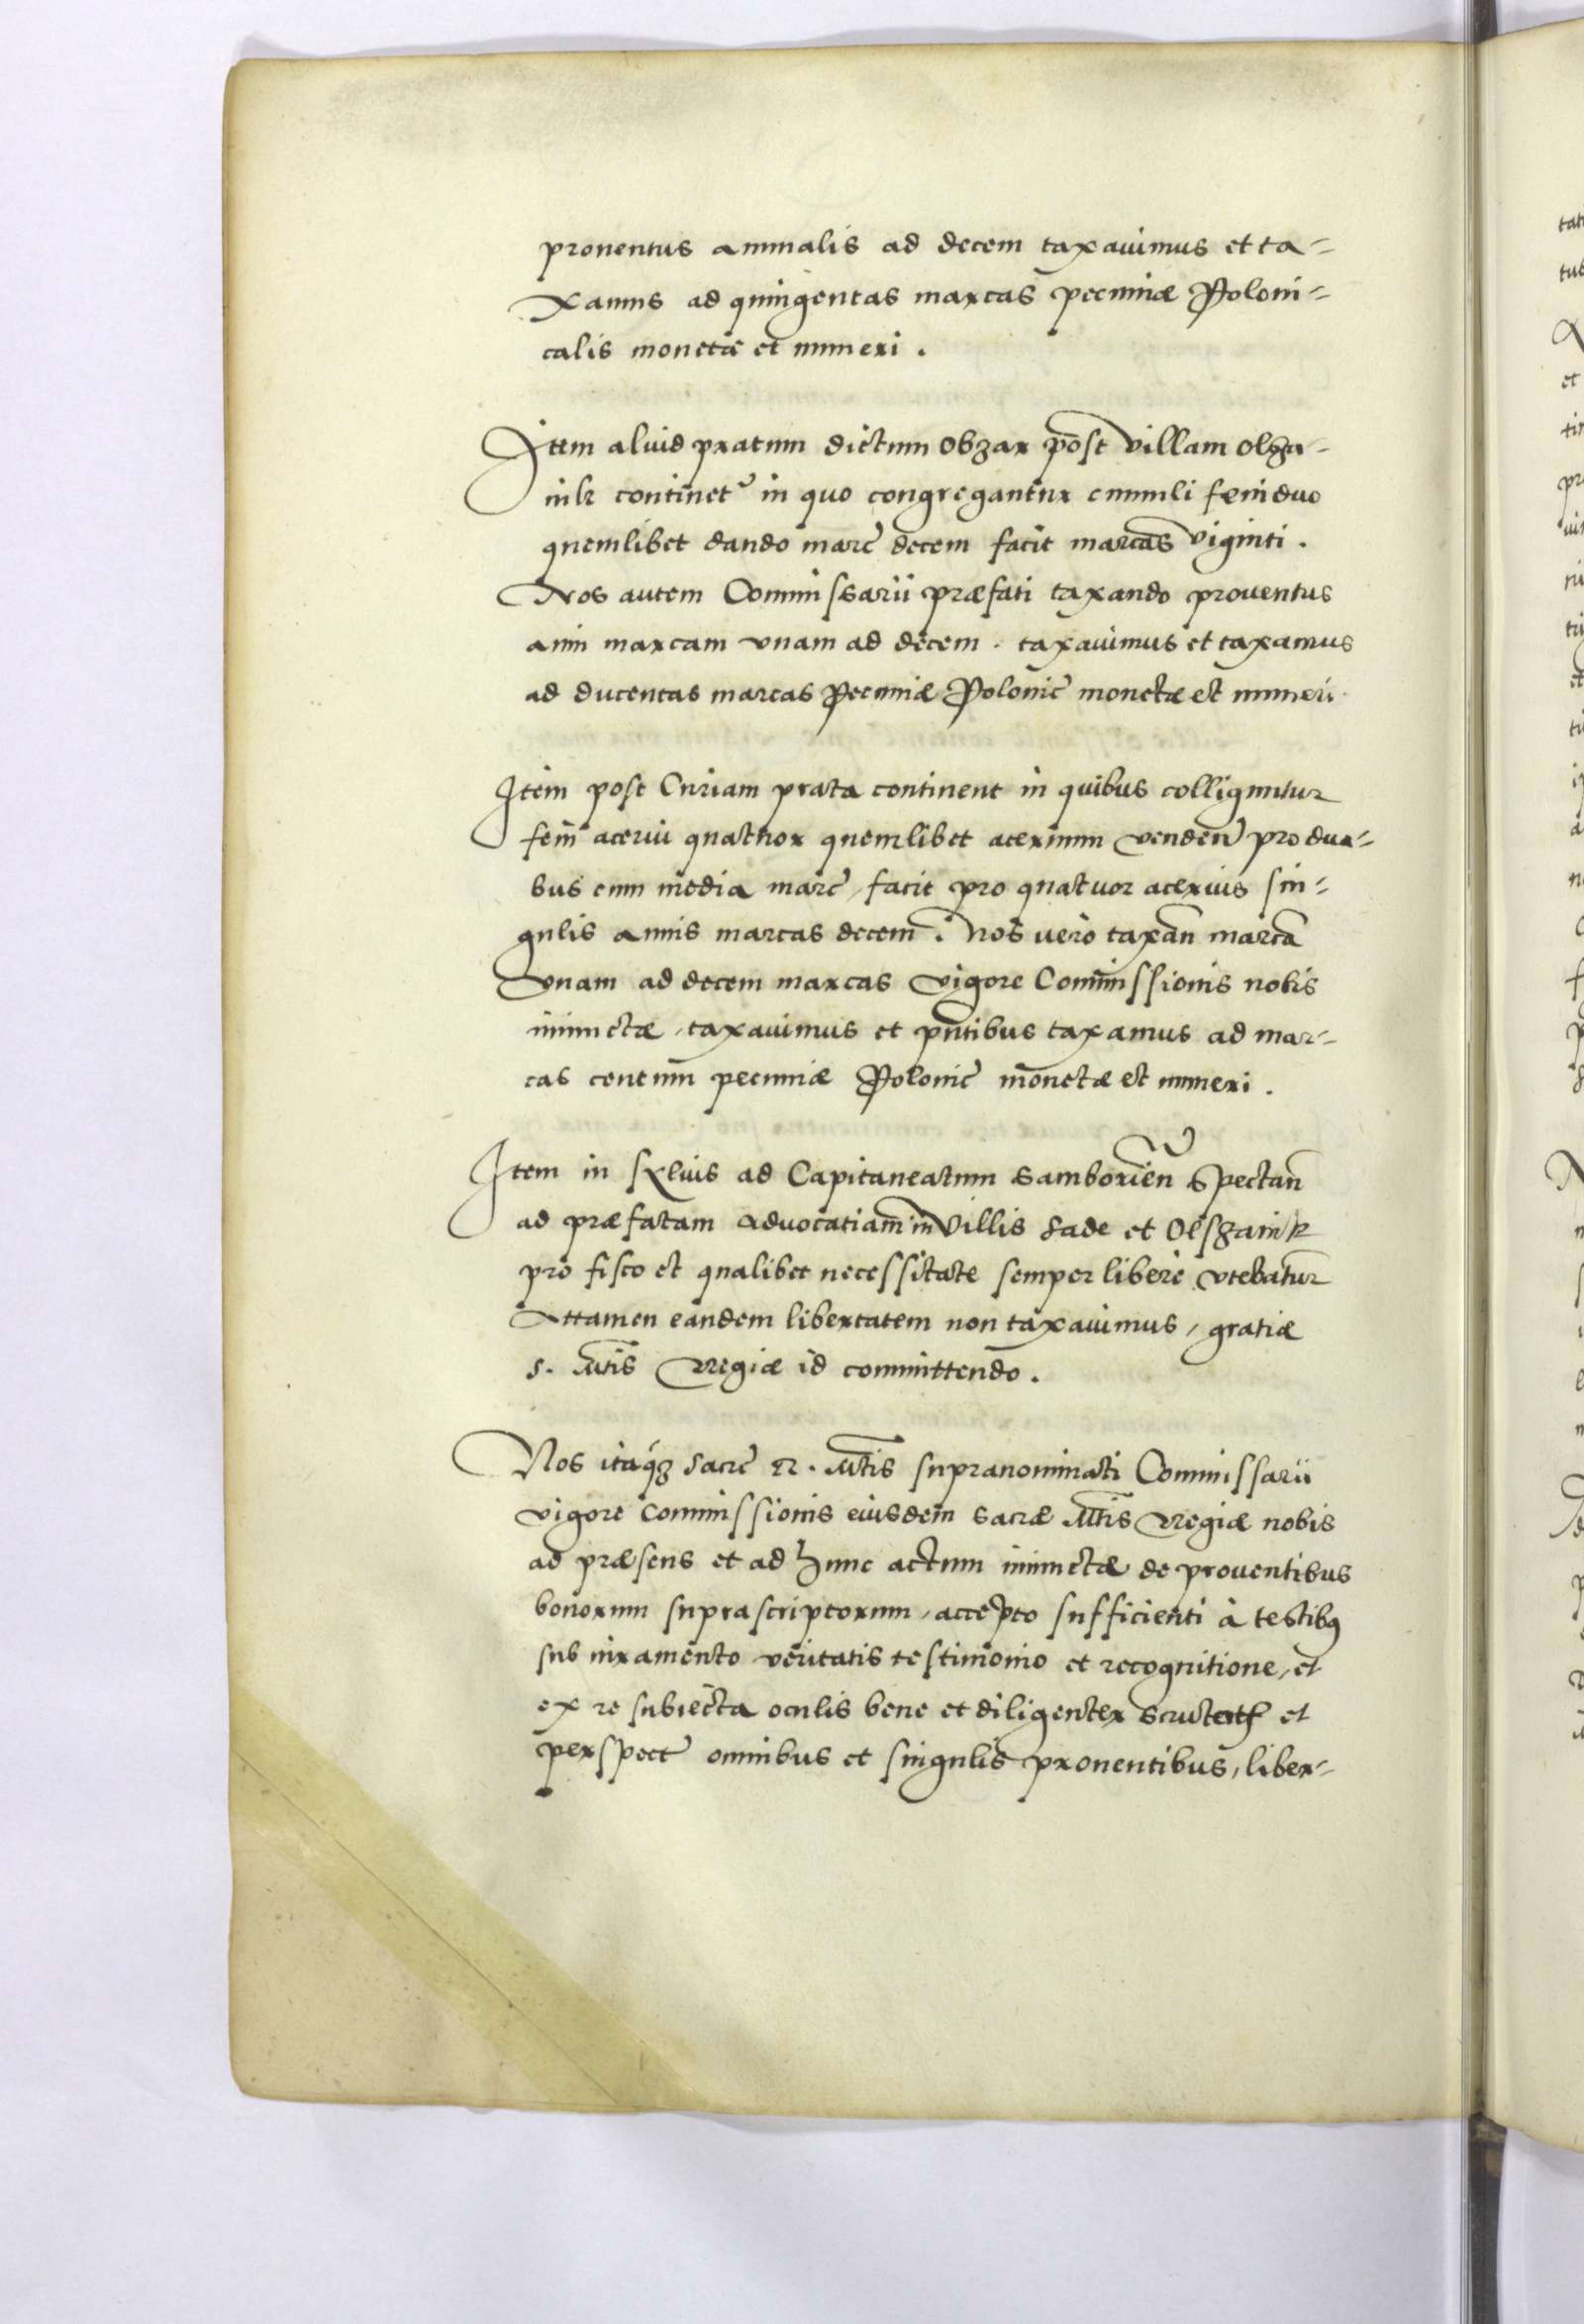 prouentus annualis ad decem taxauimus et ta=
xamus ad quingentas marcas pecuniæ Poloni=
calis monetæ et numeri.
Item aliud pratum dictum Obzar post villam Olsza-
nik continet᷑ in quo congregantur cumuli feni duo
quemlibet dando marc̃ decem facit marcas viginti.
Nos autem Commissarii præfati taxando prouentus
anni marcam vnam ad decem. taxauimus et taxamus
ad ducentas marcas Pecuniæ Polonic̃ monetæ et numeri
Item post Curiam prata continent in quibus colliguntur
feni acerui quatuor quemlibet aceruum venden̄ pro dua=
bus cum media marc̃, facit pro quatuor aceruis sin=
gulis annis marcas decem. Nos uero taxan̄ marcā
vnam ad decem marcas vigore Commissionis nobis
iniunctæ, taxauimus et pn̄tibus taxamus ad mar=
cas centum pecuniæ Polonic̃ monetæ et numeri.
Item in syluis ad Capitaneatum Samborien̄ Spectan̄
ad præfatam aduocatiam in Villis Sade et Olszanik
pro fisco et qualibet necessitate semper liberè vtebatur
Attamen eandem libertatem non taxauimus, gratiæ
S. Mtis Regiæ id committendo.
Nos itaq́ꝫ Sacrc̃ R. Mtis supranominati Commissarii
vigore Commissionis eiusdem Sacræ Mtis Regiæ nobis
ad præsens et ad hunc actum iniunctæ de prouentibus
bonorum suprascriptorum, accepto sufficienti à testibꝫ
sub iuramento veritatis testimonio et recognitione, et
ex re subiecta oculis bene et diligenter et
perspect̃ omnibus et singulis prouentibus, liber=
tat
tus
et